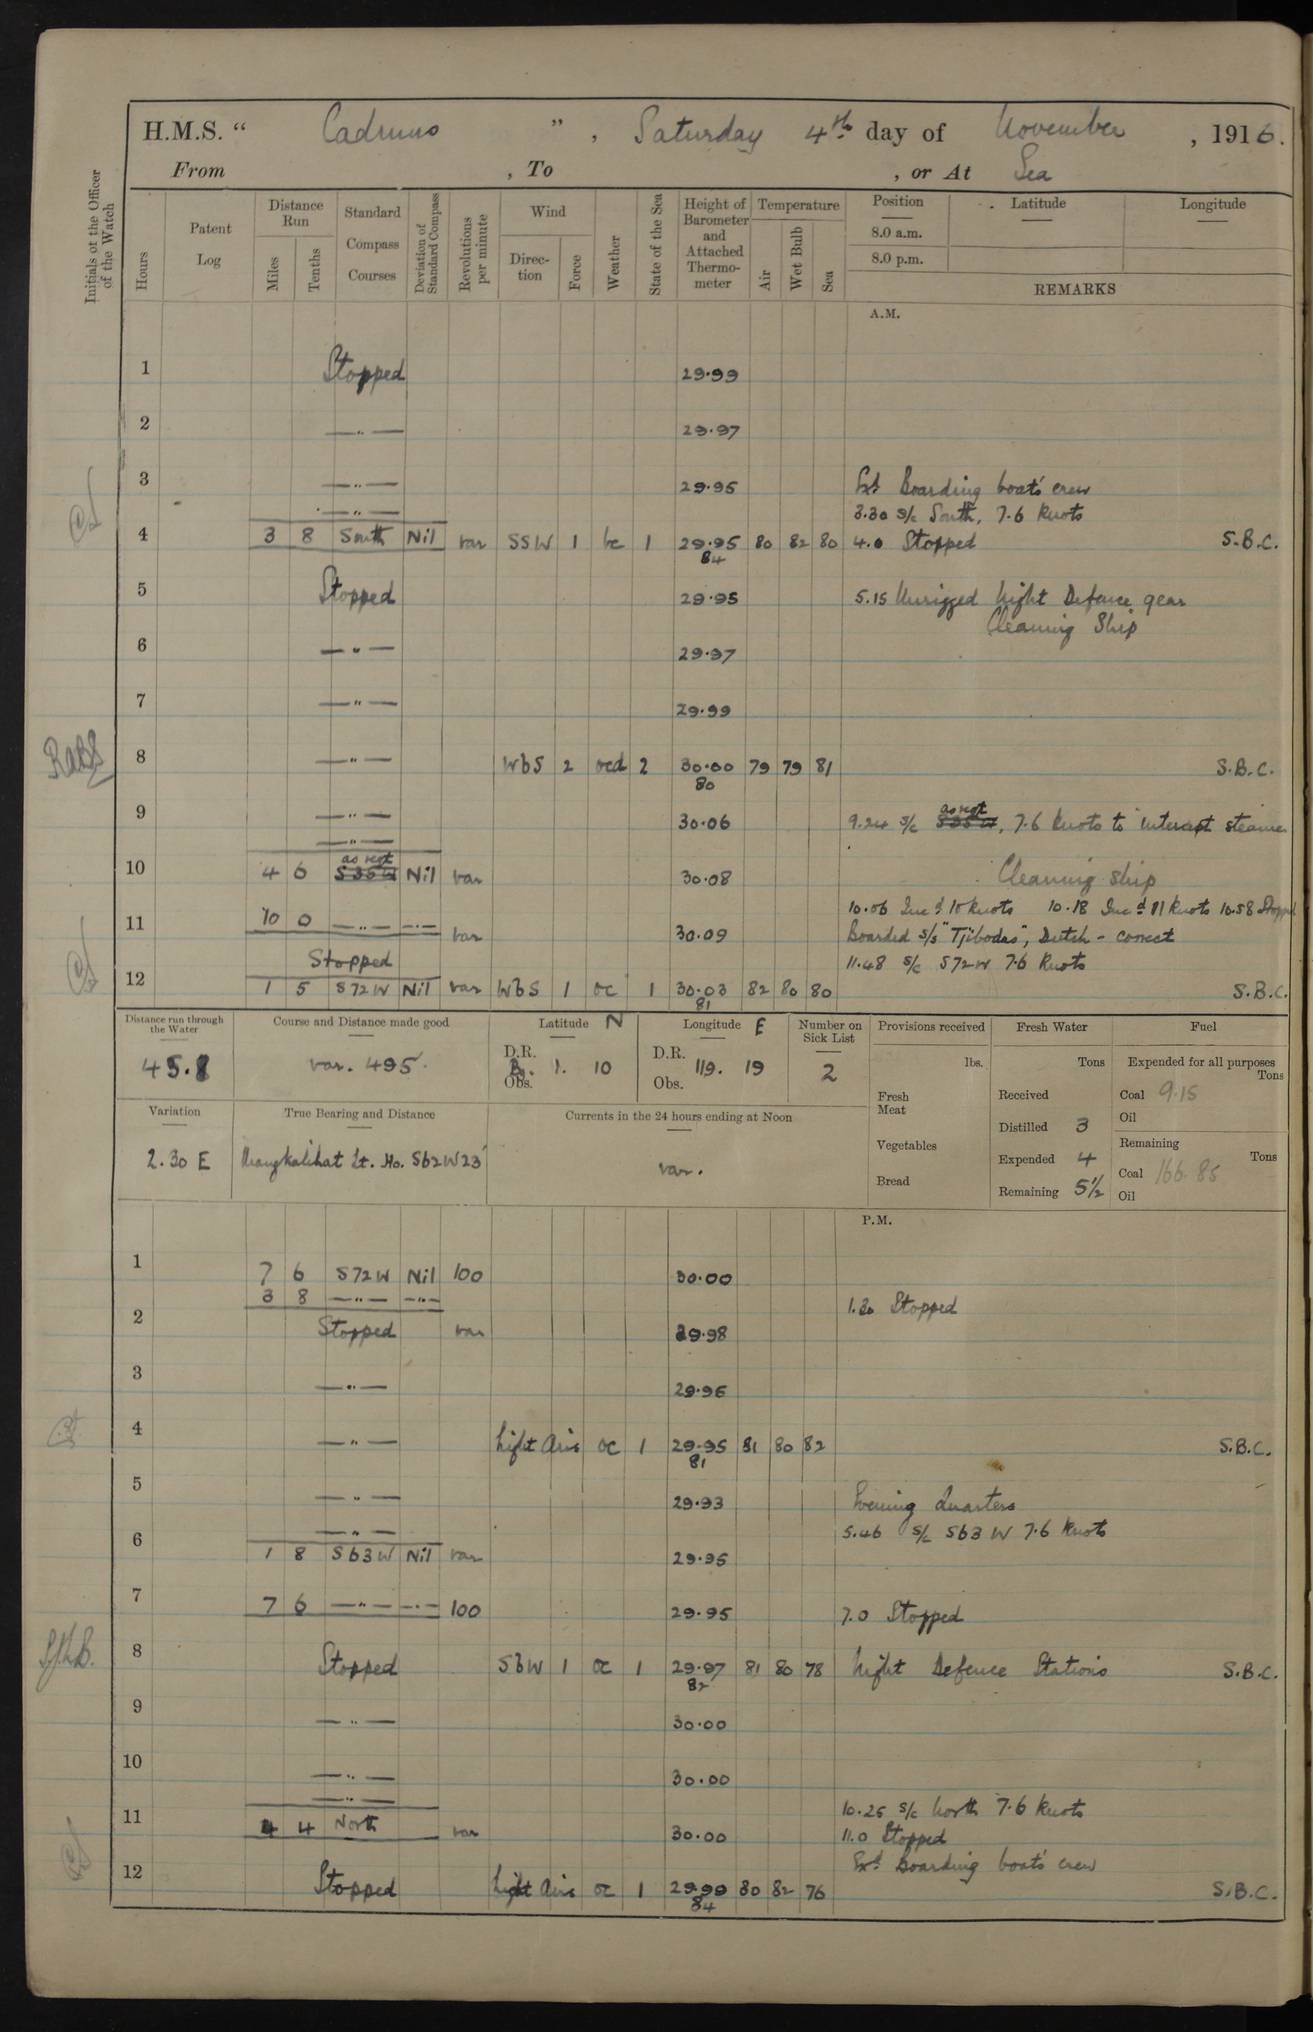 H.M.S. “ Cadmus ” , Saturday 4th day of November , 1916.
From , To , or At Sea
Initials of the Officer of the Watch
Hours
Patent Log
Distance Run
Miles
Tenths
Standard Compass Courses
Deviation of Standard Compass
Revolutions per minute
Wind
Direction
Force
Weather
State of the Sea
Height of Barometer and Attached Thermometer
Temperature
Air
Wet Bulb
Sea
Position Latitude Longitude
8.0 a.m.
8.0 p.m.
REMARKS
A.M.
1 Stopped 29.99
2 —„— 29.97
3 —„— 29.95 Ext Boarding boat's crew
—„— 3.30 s/c South, 7.6 knots
4 3 8 South Nil var SSW 1 bc 1 29.95 80 82 80 4.0 Stopped S.B.C.
84
5 Stopped 29.95 5.15 Unrigged Night Defence gear
Cleaning Ship
6 —„— 29.97
7 —„— 29.99
8 —„— WbS 2 ocd 2 30.00 79 79 81 S.B.C.
80
9 —„— 30.06 9.24 s/c as reqt S35W, 7.6 knots to intercept steamer
—„—
10 4 6 as reqt S35W Nil var 30.08 Cleaning ship
10.06 Incd 10 knots 10.18 Incd 11 knots 10.58 Stopped
11 10 0 —„— —„— var 30.09 Boarded s/s "Tjibodas", Dutch - correct
Stopped 11.48 s/c S72W 7.6 knots
12 1 5 S72W Nil var WbS 1 oc 1 30.03 82 80 80 S.B.C.
81
Distance run through the Water
45.8
Course and Distance made good
var. 495.
Latitude N
D.R.
Obs.
1. 10
Longitude E
D.R.
Obs.
119. 19
Number on Sick List
2
Provisions received
lbs.
Fresh Meat
Vegetables
Bread
Fresh Water
Tons
Received
Distilled 3
Expended 4
Remaining 5½
Fuel
Expended for all purposes
Tons
Coal 9.15
Oil
Remaining
Tons
Coal 166.85
Oil
Variation
2.30 E
True Bearing and Distance
Mangkalihat Lt. Ho. S62W23'
Currents in the 24 hours ending at Noon
var.
P.M.
1 7 6 S72W Nil 100 30.00
3 8 —„— —„— 1.30 Stopped
2 Stopped var 29.98
3 —„— 29.96
4 —„— Light Airs oc 1 29.95 81 80 82 S.B.C.
81
5 —„— 29.93 Evening Quarters
—„— 5.46 s/c S63W 7.6 knots
6 1 8 S63W Nil var 29.95
7 7 6 —„— —„— 100 29.95 7.0 Stopped
8 Stopped SbW 1 oc 1 29.97 81 80 78 Night Defence Stations S.B.C.
82
9 —„— 30.00
10 —„— 30.00
—„— 10.25 s/c North 7.6 knots
11 4 4 North var 30.00 11.0 Stopped
Ext Boarding boat's crew
12 Stopped Light Airs oc 1 29.99 80 82 76 S.B.C.
84